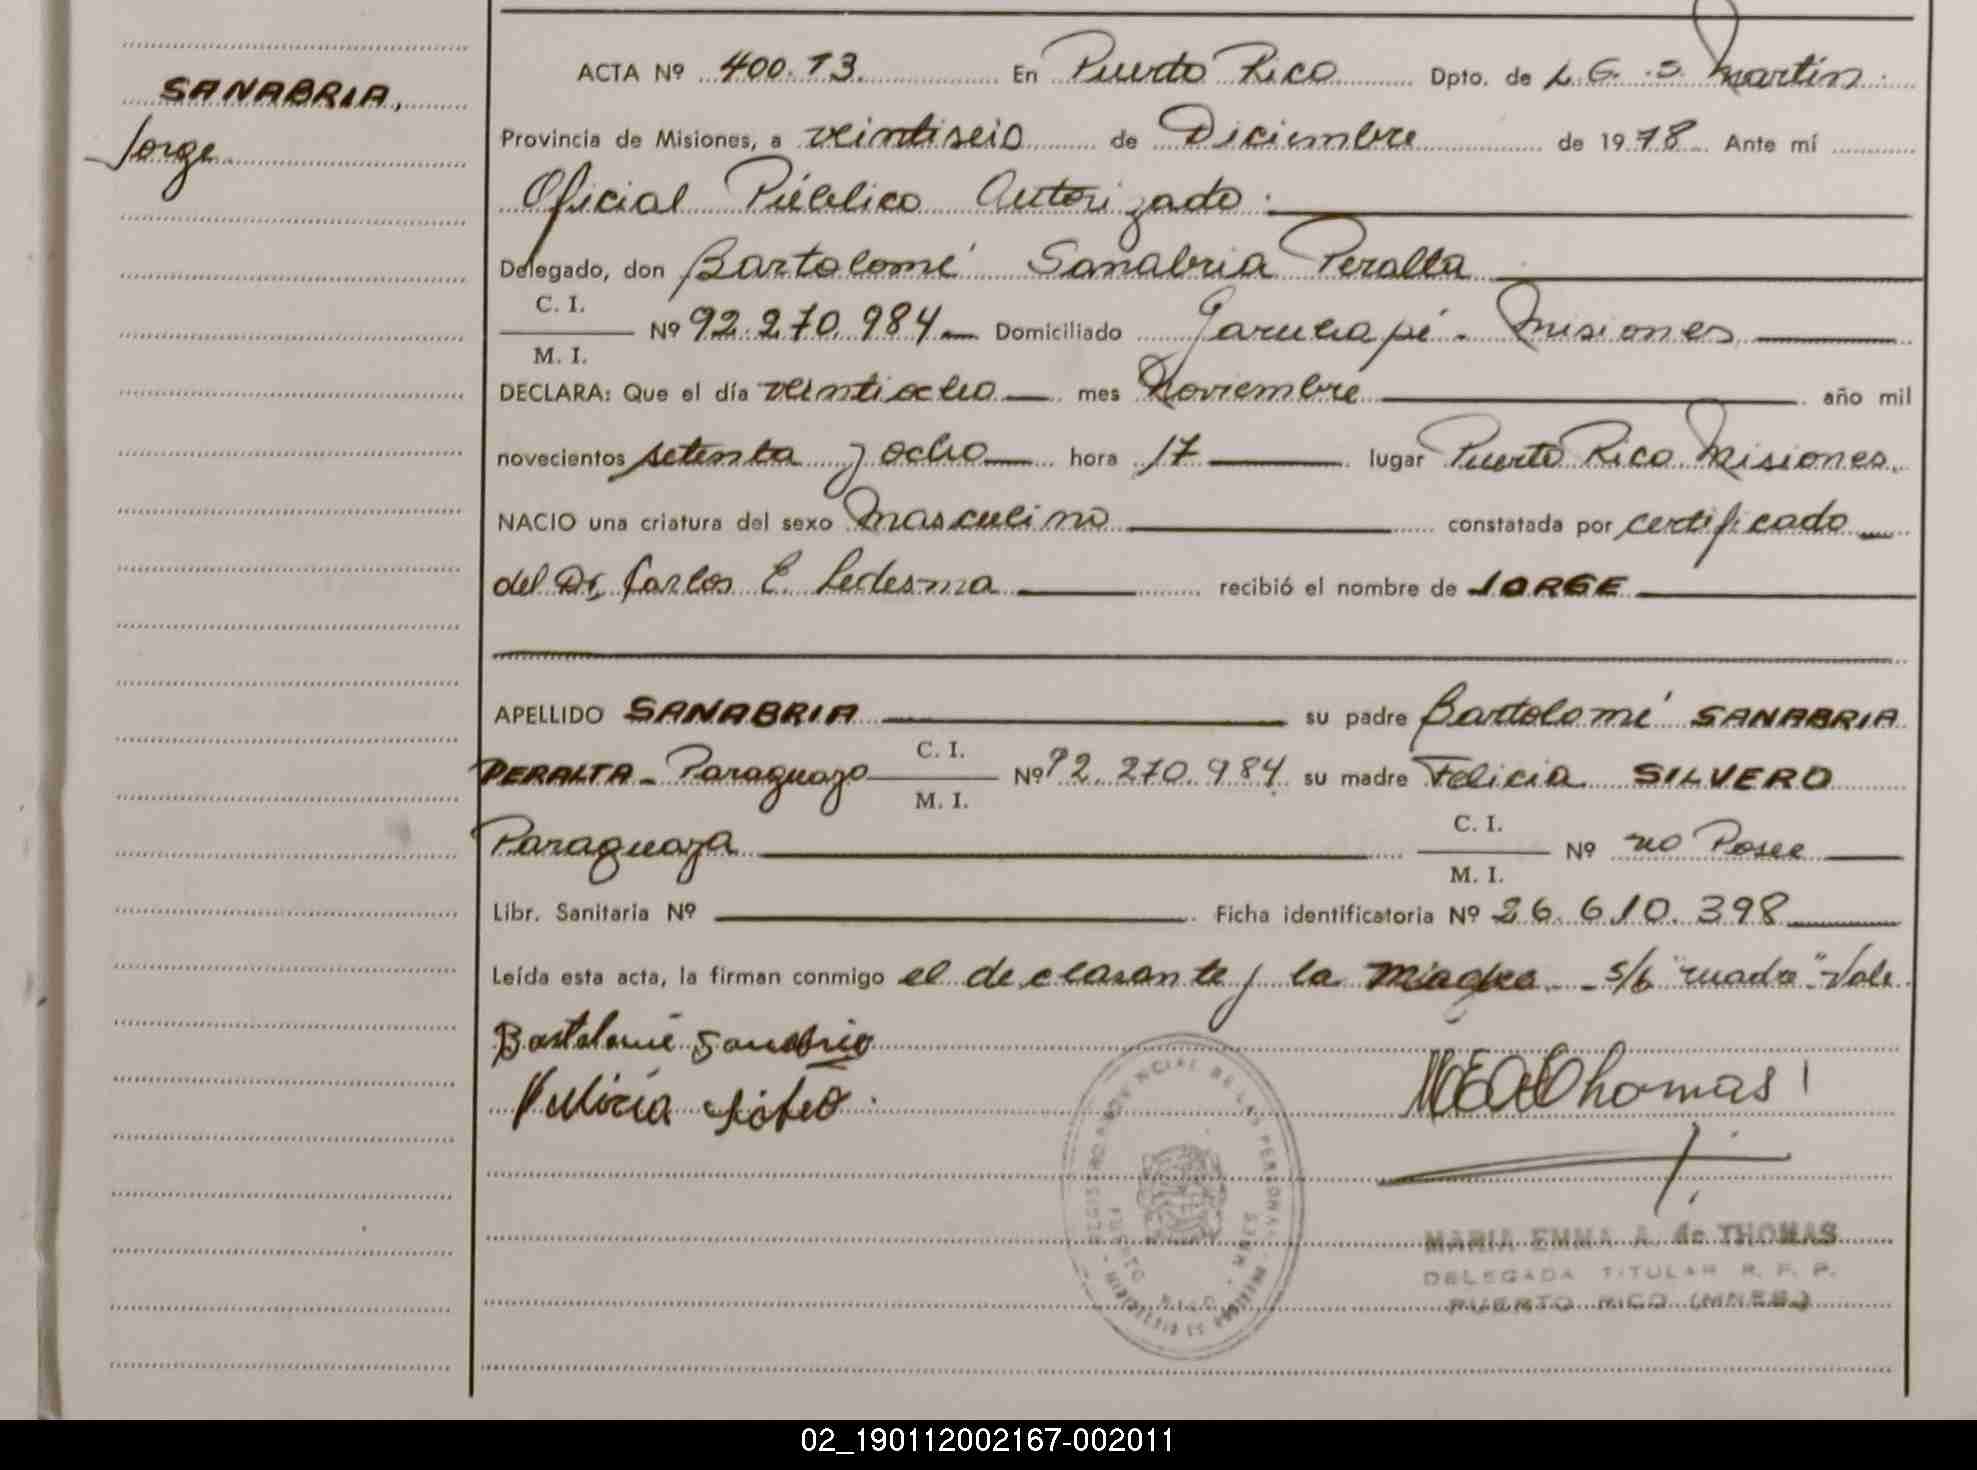 SANABRIA,
Jorge
ACTA Nº 400.T3. En Puerto Rico Dpto. de L. G. S. Martín.
Provincia de Misiones, a veintiseis de Diciembre de 1978 Ante mí
Oficial Público Autorizado.
Delegado, don Bartolomé Sanabria Peralta
C. I.
M. I. Nº 92.270.984 Domiciliado Garuhapé - Misiones
DECLARA: Que el día veintiocho mes Noviembre año mil
novecientos setenta y ocho hora 17 lugar Puerto Rico Misiones.
NACIO una criatura del sexo Masculino constatada por certificado
del Dr. Carlos E. Ledesma recibió el nombre de JORGE
APELLIDO SANABRIA su padre Bartolomé SANABRIA
PERALTA - Paraguayo C. I. M. I. Nº 92.270.984 su madre Felicia SILVERO
Paraguaya C. I. M. I. Nº no Posee
Libr. Sanitaria Nº Ficha identificatoria Nº 26.610.398
Leída esta acta, la firman conmigo el declarante y la Madre. - s/b "madre". Vale
Bartolomé Sanabria
REGISTRO PROVINCIAL DE LAS PERSONAS
PUERTO RICO - MNES
MARIA EMMA A. de THOMAS
DELEGADA TITULAR R. P. P.
PUERTO RICO (MNES.)
02_190112002167-002011